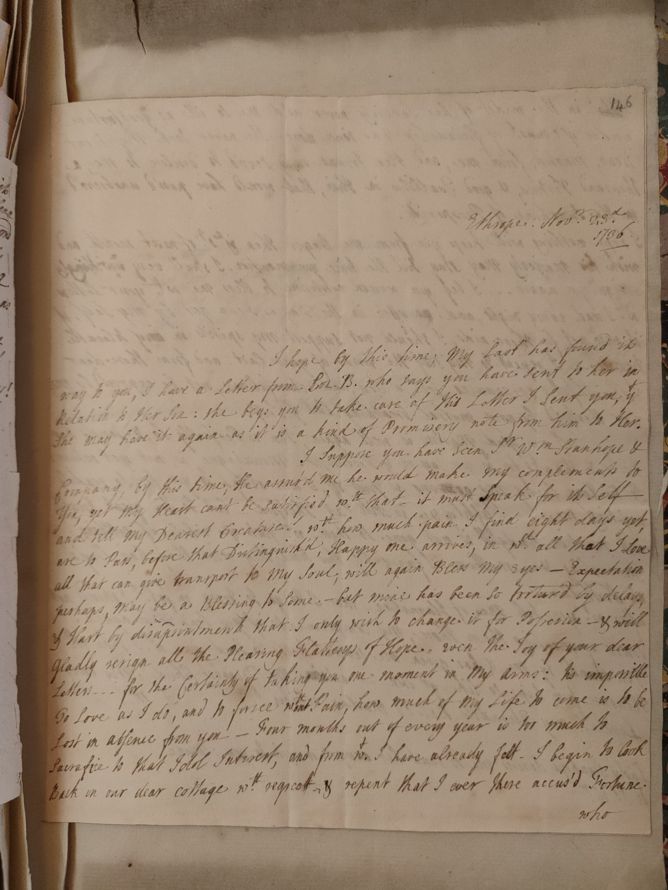 146
Ethrope. Nov.r 23.d
1736
I hope by this time, My Last has found its
way to you, I have a Letter from B. who says you have sent to her in
Relation to Her : she begs you to take care of His Letter I Sent you, yt
She may have it again as it is a kind of Promisery note from him to Her.
I Suppose you have seen Sr Wm Stanhope &
Company, by this time, He assur'd me he would make my complements to
You, yet my Heart cant be satisfied wth that - it must Speak for its Self -
and tell my Dearest Creature, wth how much pain I find eight days yet,
are to Pass, before that Distinguish'd, Happy one arrives, in wch all that I Love
all that can give transport to My Soul, will again Bless My Eyes - Expectation
perhaps, may be a Blessing to Some - but mine has been so tortur'd by delays,
& Hurt by disapointments that I only wish to change it for - & will
gladly resign all the Pleasing Flatterys of Hope.. even the Joy of your dear
Letters... for the Certainty of taking you one moment in My arms: tis impossible
To Love as I do, and to forsee wthout Pain, how much of my Life to come is to be
Lost in absence from you - Four months out of every year is too much to
Sacrafice to that Idol Interest, and from wt I have already felt - I begin to Look
Back on our dear cottage wth regrett - & repent that I ever there accus'd Fortune.
who